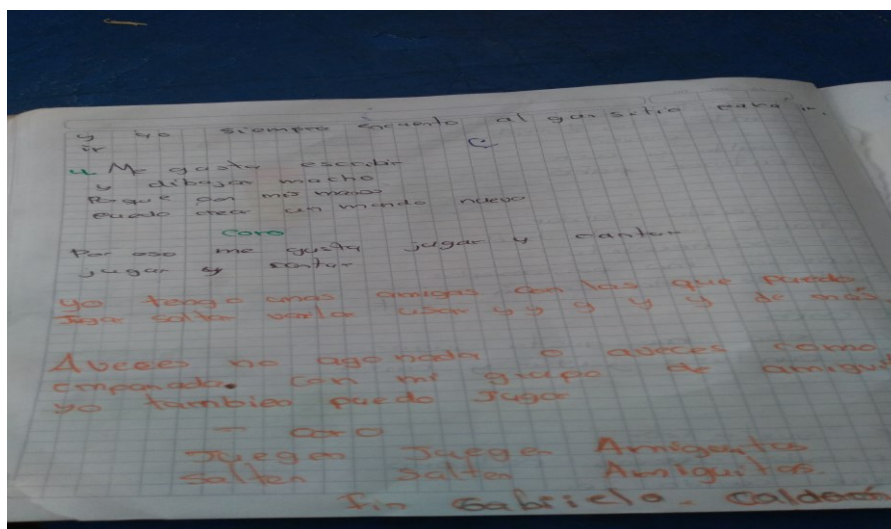 y yo siempre encuento al gun sitio para
ir
4. Me gusta escribir
y dibujar mucho
Porque con mis manos
puedo crear un mundo nuevo
coro
Por eso me gusta jugar y cantar
jugar y cantar
yo tengo unas amigas con las que puedo
Jgar saltar y y y y de más
Aveces no ago nada o aveces como
empanada. con mi grupo de
yo tambien puedo jugar
- coro
Jueguen Jueguen Amiguitos
salten salten Amiguitos.
fin Gabriela - Calderón